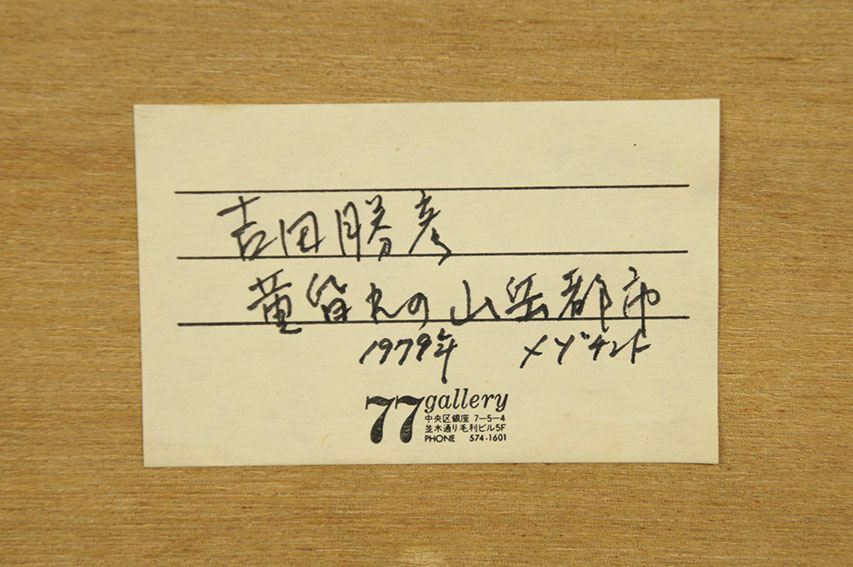 吉田勝彦
黄昏れの山岳都市
1979年 メゾチント
77 gallery
中央区銀座 7-5-4
並木通り毛利ビル5F
PHONE 574-1601